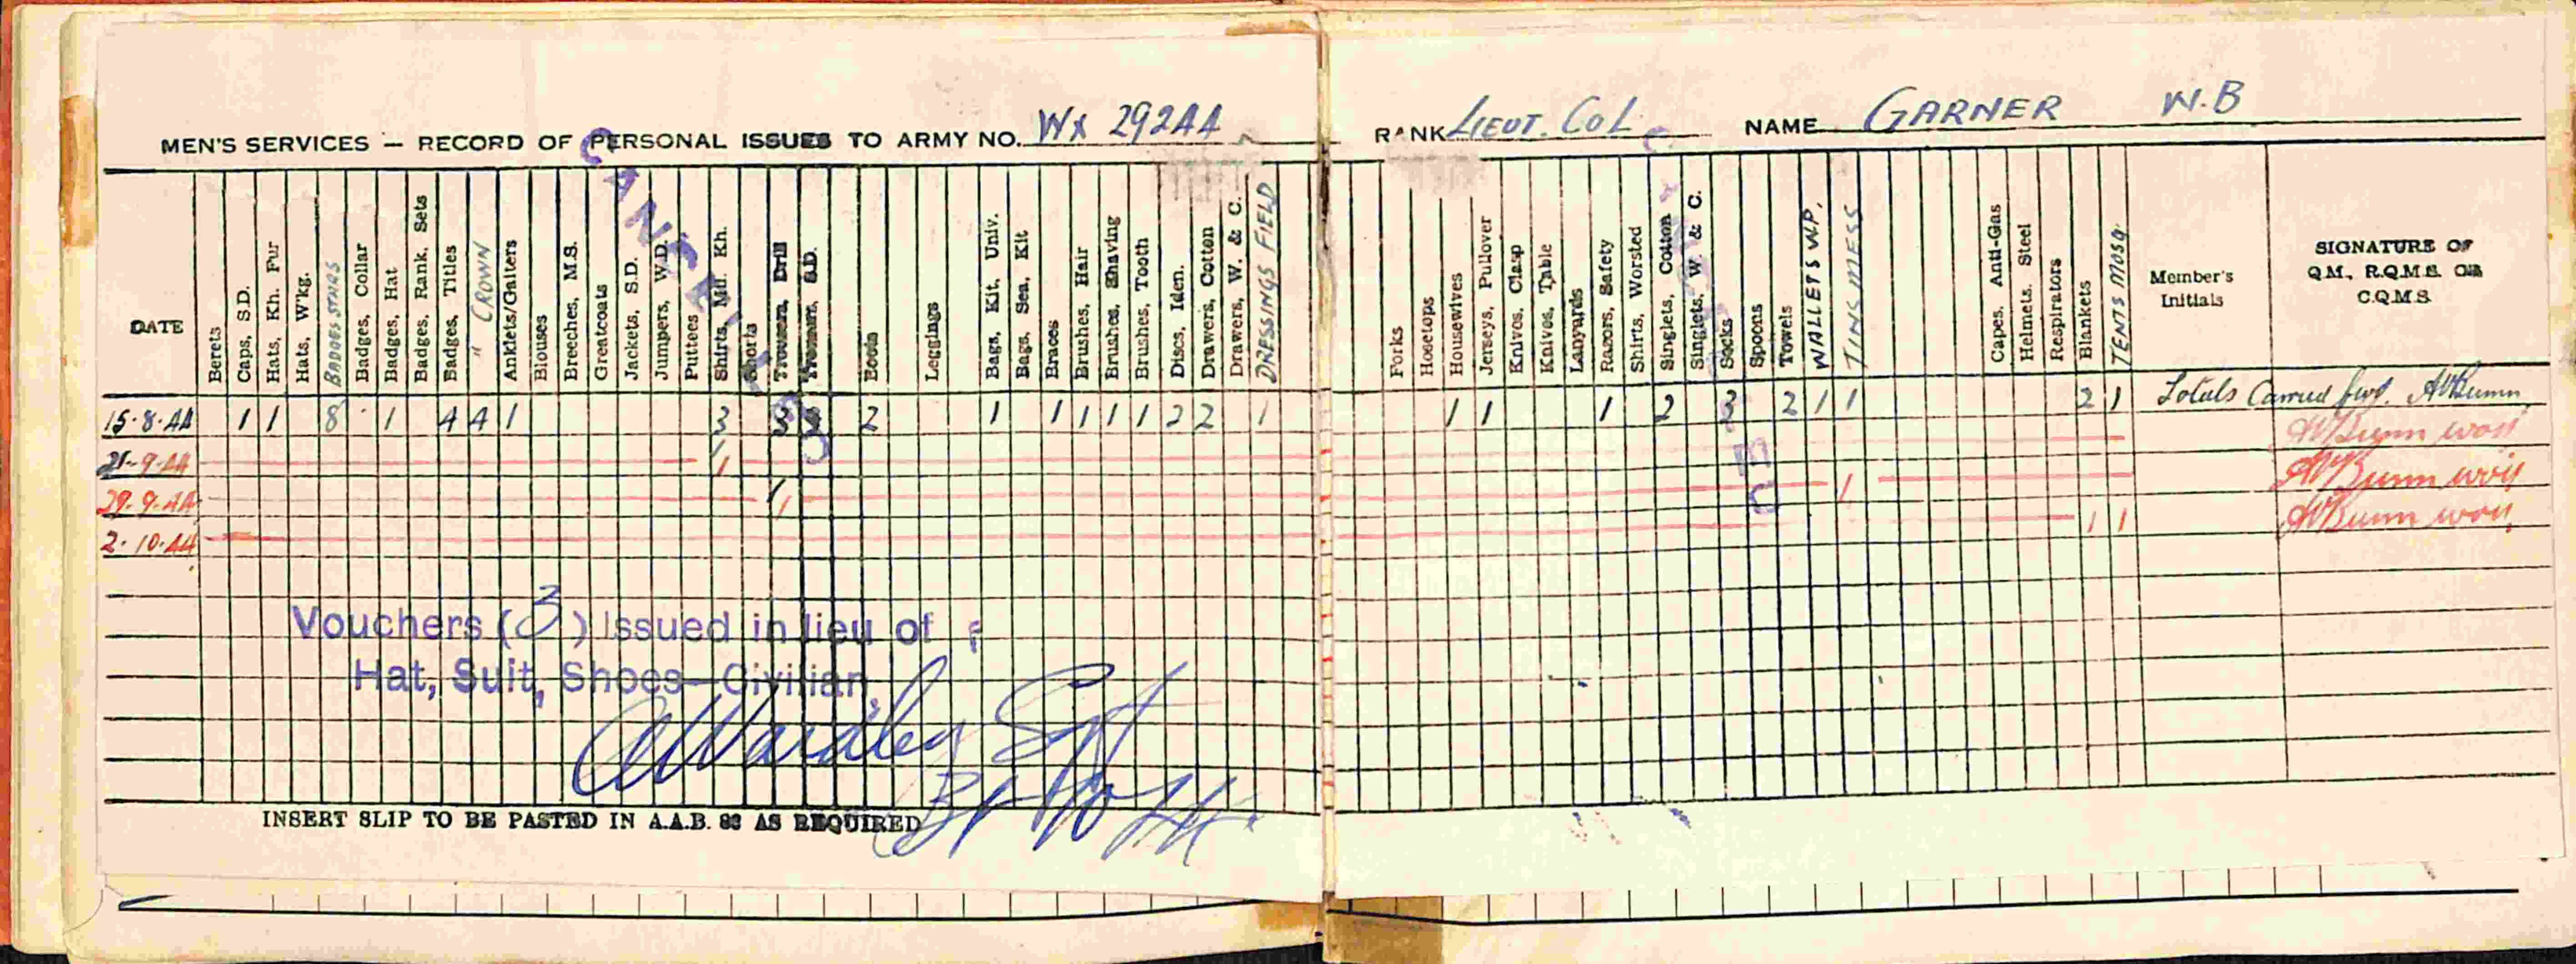 MEN'S SERVICES — RECORD OF PERSONAL ISSUES TO ARMY NO. WX 29244 RANK LIEUT. COL. NAME GARNER W.B
CANCELLED
CANCELLED
DATE
Berets
Caps, S.D.
Hats, Kh. Fur
Hats, Wkg.
BADGES STARS
Badges, Collar
Badges, Hat
Badges, Rank. Sets
Badges, Titles
" CROWN
Anklets/Gaiters
Blouses
Breeches, M.S.
Greatcoats
Jackets, S.D.
Jumpers, W.D.
Puttees
Shirts, Md. Kh.
Shorts
Trousers, Drill
Trousers, S.D.
Boots
Leggings
Bags, Kit, Univ.
Bags, Sea, Kit
Braces
Brushes, Hair
Brushes, Shaving
Brushes, Tooth
Discs, Iden.
Drawers, Cotton
Drawers, W. & C.
DRESSINGS FIELD
Forks
Housetops
Housewives
Jerseys, Pullover
Knives, Clasp
Knives, Table
Lanyards
Razors, Safety
Shirts, Worsted
Singlets, Cotton
Singlets, W. & C.
Socks
Spoons
Towels
WALLETS W.P.
TINS MESS
Capes, Anti-Gas
Helmets, Steel
Respirators
Blankets
TENTS MOSQ.
Member's
Initials
SIGNATURE OF
Q.M., R.Q.M.S. OR
C.Q.M.S.
15-8-44 1 1 8 1 4 4 1 3 3 2 1 1 1 1 1 2 2 1 1 1 1 2 3 2 1 1 2 1 Totals Carried fwd. AVBunn
21-9-44 1 AVBunn
29-9-44 1 1 AVBunn
2-10-44 1 1 AVBunn
Vouchers (3) Issued in lieu of
Hat, Suit, Shoes—Civilian.
Wardley Sgt
INSERT SLIP TO BE PASTED IN A.A.B. 83 AS REQUIRED